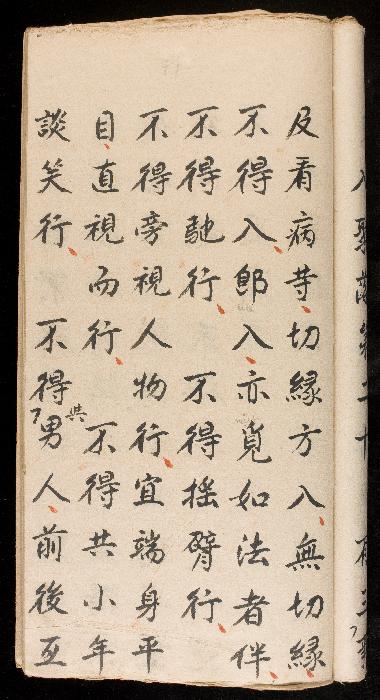 及看病䒭切緣方入無切緣
不得入即入亦覓如法者伴
不得馳行 不得揺臂行
不得旁視人物行宜端身平
目直視而行 不得共小年
談笑行 不得男人前後互